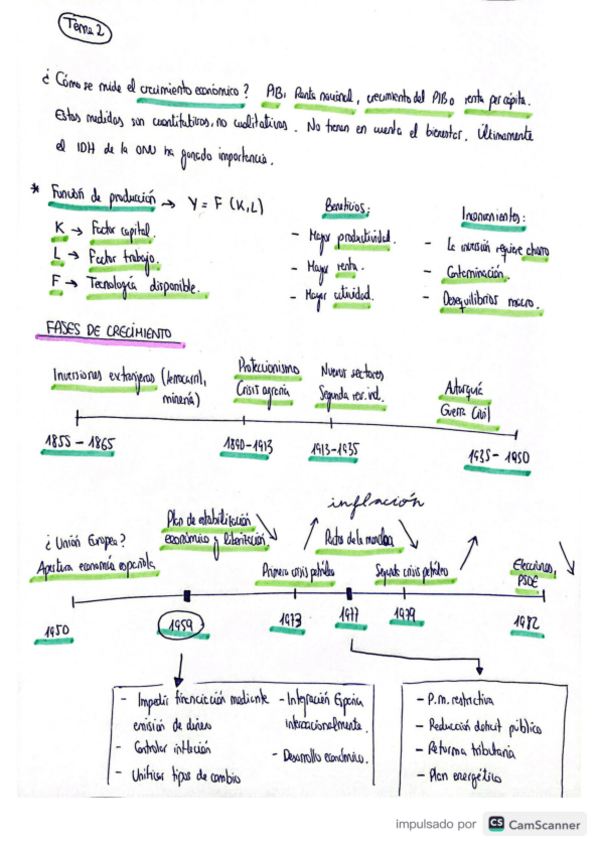 Tema 2
¿Cómo se mide el crecimiento económico? PIB, Renta nacional, crecimiento del PIB o renta per cápita.
Estas medidas son cuantitativas, no cualitativas. No tienen en cuenta el bienestar. Últimamente
el IDH de la ONU ha ganado importancia.
* Función de producción → Y = F (K,L)
K → Factor capital.
L → Factor trabajo.
F → Tecnología disponible.
Beneficios:
- Mayor productividad.
- Mayor renta.
- Mayor actividad.
Inconvenientes:
- La inversión requiere ahorro
- Contaminación.
- Desequilibrios macro.
FASES DE CRECIMIENTO
Inversiones extranjeras (ferrocarril,
minería)
Proteccionismo
Crisis agraria
Nuevos sectores
Segunda rev. ind.
Autarquía
Guerra Civil
1855 - 1865
1890-1913
1913-1935
1935- 1950
inflación
¿Unión Europea?
Apertura economía española.
Plan de estabilización
económico y liberalización.
Primera crisis petróleo
Pactos de la moncloa
Segunda crisis petróleo
Elecciones,
PSOE
1950
1959
1973
1977
1979
1982
- Impedir financiación mediante
emisión de dinero
- Controlar inflación
- Unificar tipos de cambio
- Integración España
internacionalmente.
- Desarrollo económico.
- P.m. restrictiva
- Reducción deficit público
- Reforma tributaria
- Plan energético
impulsado por CS CamScanner